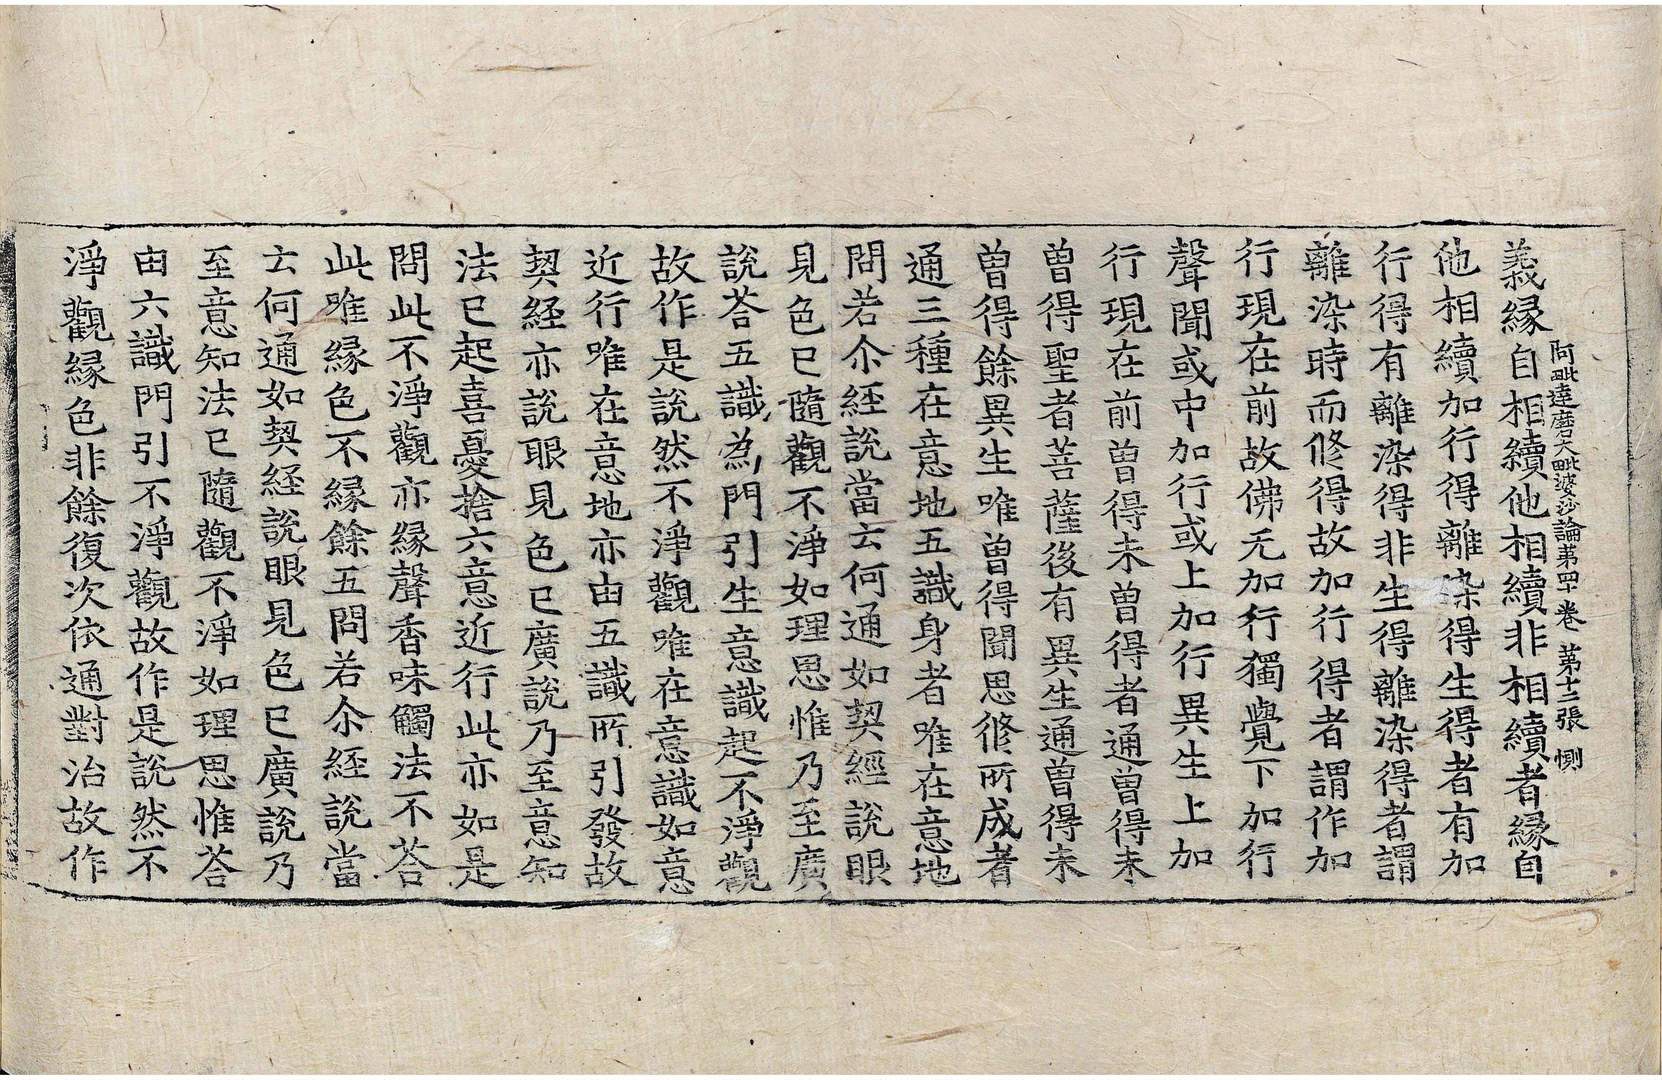 阿毗達磨大毗婆沙論第四十卷 第十二張 惻
義縁自相續他相續非相續者縁自
他相續加行得離染得生得者有加
行得有離染得非生得離染得者謂
離染時而修得故加行得者謂作加
行現在前故佛无加行獨覺下加行
聲聞或中加行或上加行異生上加
行現在前曾得未曾得者通曾得未
曾得聖者菩薩後有異生通曾得未
曾得餘異生唯曾得聞思修所成者
通三種在意地五識身者唯在意地
問若尒經說當云何通如契經說眼
見色已隨觀不淨如理思惟乃至廣
說荅五識為門引生意識起不淨觀
故作是說然不淨觀唯在意識如意
近行唯在意地亦由五識所引發故
契経亦說眼見色已廣說乃至意知
法已起喜憂捨六意近行此亦如是
問此不淨觀亦縁聲香味觸法不荅
此唯縁色不縁餘五問若尒経說當
云何通如契経說眼見色已廣說乃
至意知法已隨觀不淨如理思惟荅
由六識門引不淨觀故作是說然不
淨觀縁色非餘復次依通對治故作